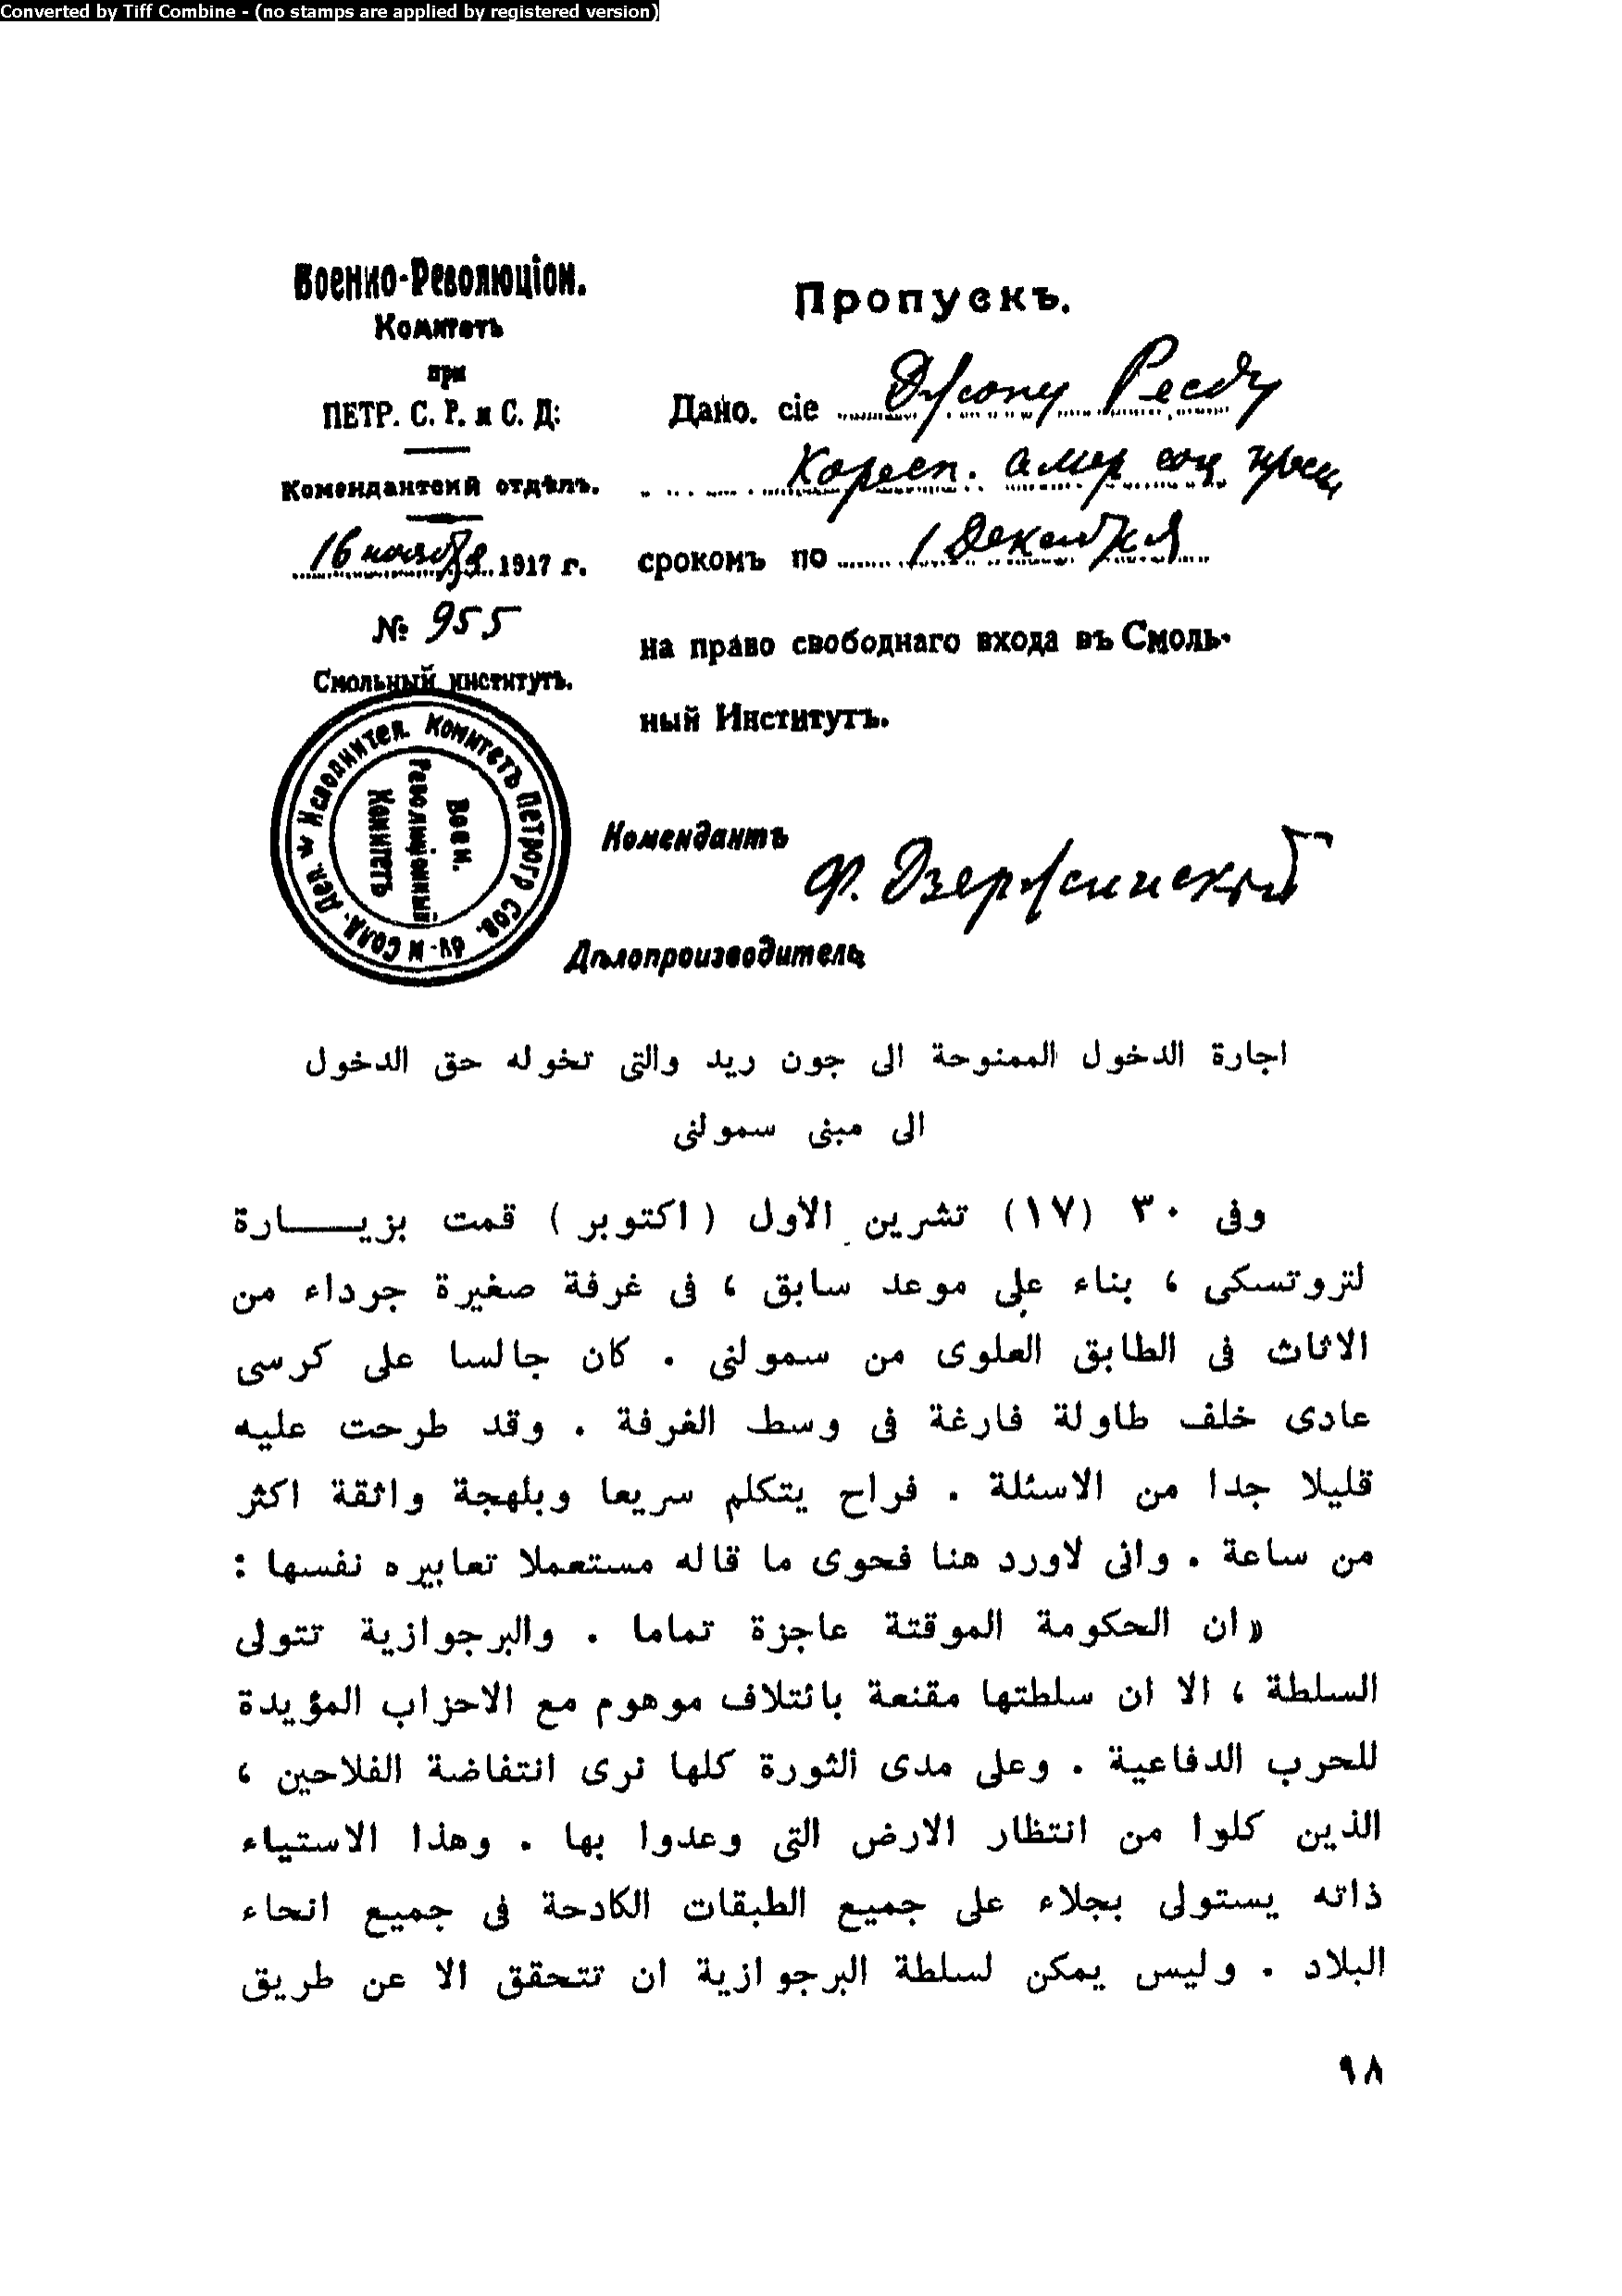 Converted by Tiff Combine - (no stamps are applied by registered version)
Военно-Революціон.
Комитетъ
при
ПЕТР. С. Р. и С. Д:
Комендантскій отдѣлъ.
16 ноября 1917 г.
№ 955
Смольный институтъ.
Исполнител. Комитетъ Петрогр Сов. и Солд. Деп.
Воен.
Революціонный
Комитетъ
Пропускъ.
Дано. сіе Джону Рееду
Коресп. амер соц
срокомъ по 1 Декабря
на право свободнаго входа въ Смоль-
ный Институтъ.
Комендантъ Ф. Дзержинскій
Дѣлопроизводитель
اجارة الدخول الممنوحة الى جون ريد والتى تخوله حق الدخول
الى مبنى سمولنى
وفى ٣٠ (١٧) تشرين الأول (اكتوبر) قمت بزيـــارة
لتروتسكى ، بناء على موعد سابق ، فى غرفة صغيرة جرداء من
الاثاث فى الطابق العلوى من سمولنى . كان جالسا على كرسى
عادى خلف طاولة فارغة فى وسط الغرفة . وقد طرحت عليه
قليلا جدا من الاسئلة . فراح يتكلم سريعا وبلهجة واثقة اكثر
من ساعة . وانى لاورد هنا فحوى ما قاله مستعملا تعابيره نفسها :
«ان الحكومة الموقتة عاجزة تماما . والبرجوازية تتولى
السلطة ، الا ان سلطتها مقنعة بائتلاف موهوم مع الاحزاب المؤيدة
للحرب الدفاعية . وعلى مدى الثورة كلها نرى انتفاضة الفلاحين ،
الذين كلوا من انتظار الارض التى وعدوا بها . وهذا الاستياء
ذاته يستولى بجلاء على جميع الطبقات الكادحة فى جميع انحاء
البلاد . وليس يمكن لسلطة البرجوازية ان تتحقق الا عن طريق
٩٨